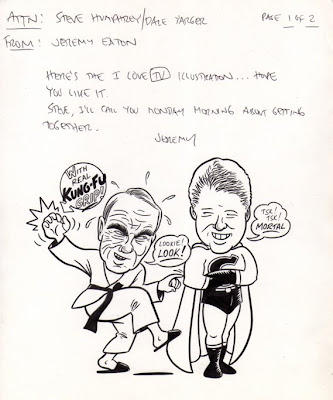 ATTN: STEVE HUMPHREY/DALE YARGER
PAGE 1 OF 2
FROM: JEREMY EATON
HERE'S THE I LOVE TV ILLUSTRATION... HOPE
YOU LIKE IT.
STEVE, I'LL CALL YOU MONDAY MORNING ABOUT GETTING
TOGETHER.
JEREMY
WITH
REAL
KUNG-FU
GRIP!
LOOKIE!
LOOK!
TSK!
TSK!
MORTAL